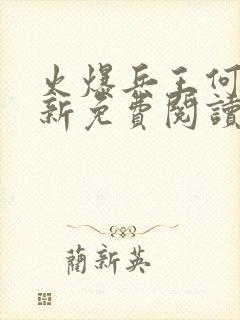 火爆兵王何
新免費閱讀
蘭新英